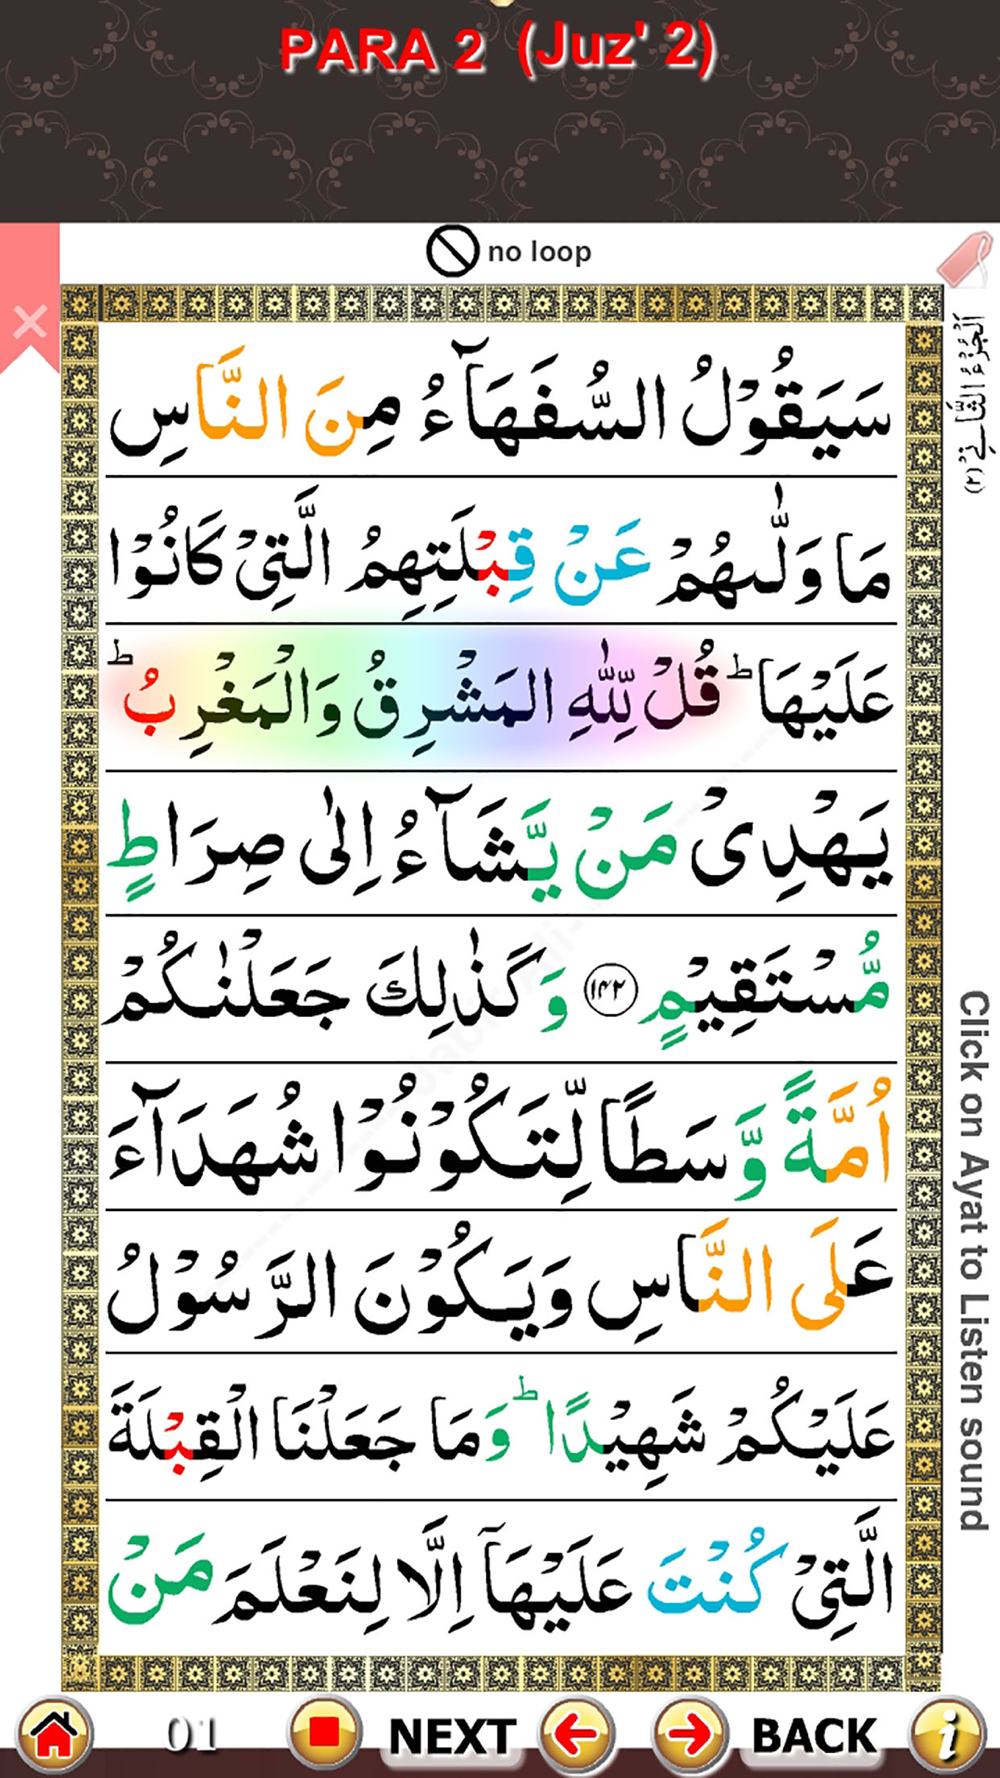 PARA 2 (Juz' 2)
no loop
اَلْجُزْءُ الثَّانِيْ (٢)
سَيَقُوْلُ السُّفَهَآءُ مِنَ النَّاسِ
مَا وَلّٰىهُمْ عَنْ قِبْلَتِهِمُ الَّتِيْ كَانُوْا
عَلَيْهَا ؕ قُلْ لِّلّٰهِ الْمَشْرِقُ وَالْمَغْرِبُ ؕ
يَهْدِيْ مَنْ يَّشَآءُ اِلٰى صِرَاطٍ
مُّسْتَقِيْمٍ ﴿۱۴۲﴾ وَكَذٰلِكَ جَعَلْنٰكُمْ
اُمَّةً وَّسَطًا لِّتَكُوْنُوْا شُهَدَآءَ
عَلَى النَّاسِ وَيَكُوْنَ الرَّسُوْلُ
عَلَيْكُمْ شَهِيْدًا ؕ وَمَا جَعَلْنَا الْقِبْلَةَ
الَّتِيْ كُنْتَ عَلَيْهَآ اِلَّا لِنَعْلَمَ مَنْ
Click on Ayat to Listen sound
01
NEXT
BACK
i